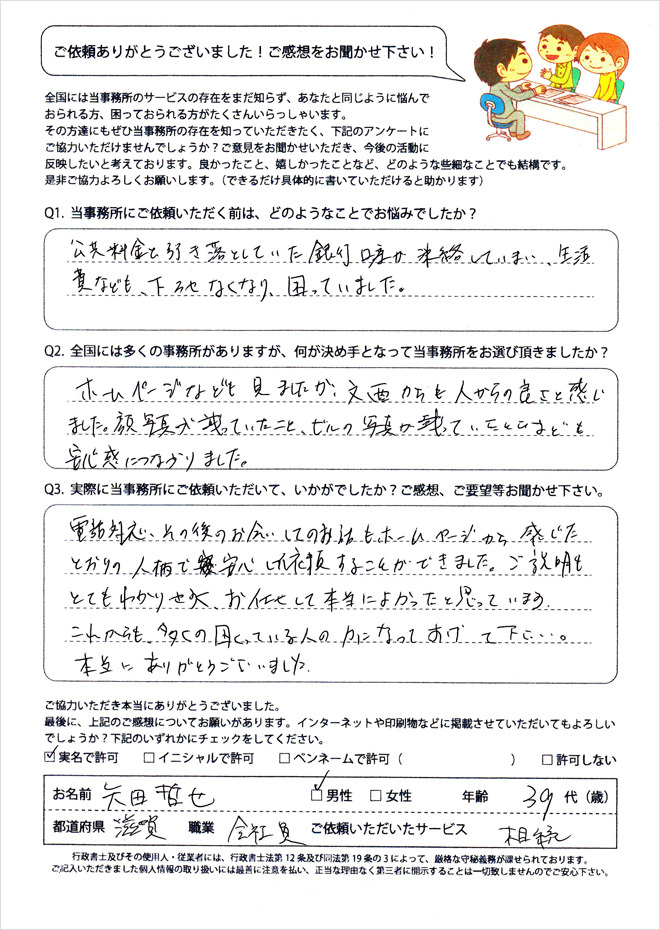 ご依頼ありがとうございました！ご感想をお聞かせ下さい！
全国には当事務所のサービスの存在をまだ知らず、あなたと同じように悩んで
おられる方、困っておられる方がたくさんいらっしゃいます。
その方達にもぜひ当事務所の存在を知っていただきたく、下記のアンケートに
ご協力いただけませんでしょうか？ご意見をお聞かせいただき、今後の活動に
反映したいと考えております。良かったこと、嬉しかったことなど、どのような些細なことでも結構です。
是非ご協力よろしくお願いします。（できるだけ具体的に書いていただけると助かります）
Q1. 当事務所にご依頼いただく前は、どのようなことでお悩みでしたか？
公共料金を引き落としていた銀行口座が凍結してしまい、生活
費なども、下ろせなくなり、困っていました。
Q2. 全国には多くの事務所がありますが、何が決め手となって当事務所をお選び頂きましたか？
ホームページなども見ましたが、文面からも人がらの良さを感じ
ました。顔写真が載っていたこと、ビルの写真が載っていたことなども
安心感につながりました。
Q3. 実際に当事務所にご依頼いただいて、いかがでしたか？ご感想、ご要望等お聞かせ下さい。
電話対応、その後のお会いしてのお話もホームページから感じた
とおりの人柄で安心し依頼することができました。ご説明も
とてもわかりやすく、お任せして本当によかったと思っています。
これからも、多くの困っている人の力になってあげて下さい。
本当にありがとうございました。
ご協力いただき本当にありがとうございました。
最後に、上記のご感想についてお願いがあります。インターネットや印刷物などに掲載させていただいてもよろしい
でしょうか？下記のいずれかにチェックをしてください。
☑実名で許可 □イニシャルで許可 □ペンネームで許可（ ） □許可しない
お名前 矢田哲也 ☑男性 □女性 年齢 39代（歳）
都道府県 滋賀 職業 会社員 ご依頼いただいたサービス 相続
行政書士及びその使用人・従業者には、行政書士法第12条及び同法第19条の3によって、厳格な守秘義務が課せられております。
ご記入いただきました個人情報の取り扱いには最善に注意を払い、正当な理由なく第三者に開示することは一切致しませんのでご安心下さい。